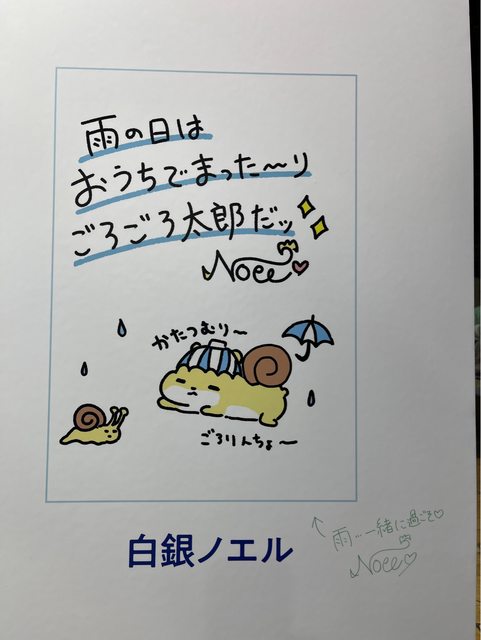 雨の日は
おうちでまった〜り
ごろごろ太郎だッ
Noel
かたつむり〜
ごろりんちょ〜
白銀ノエル
雨…一緒に過ごそ♡
Noel♡